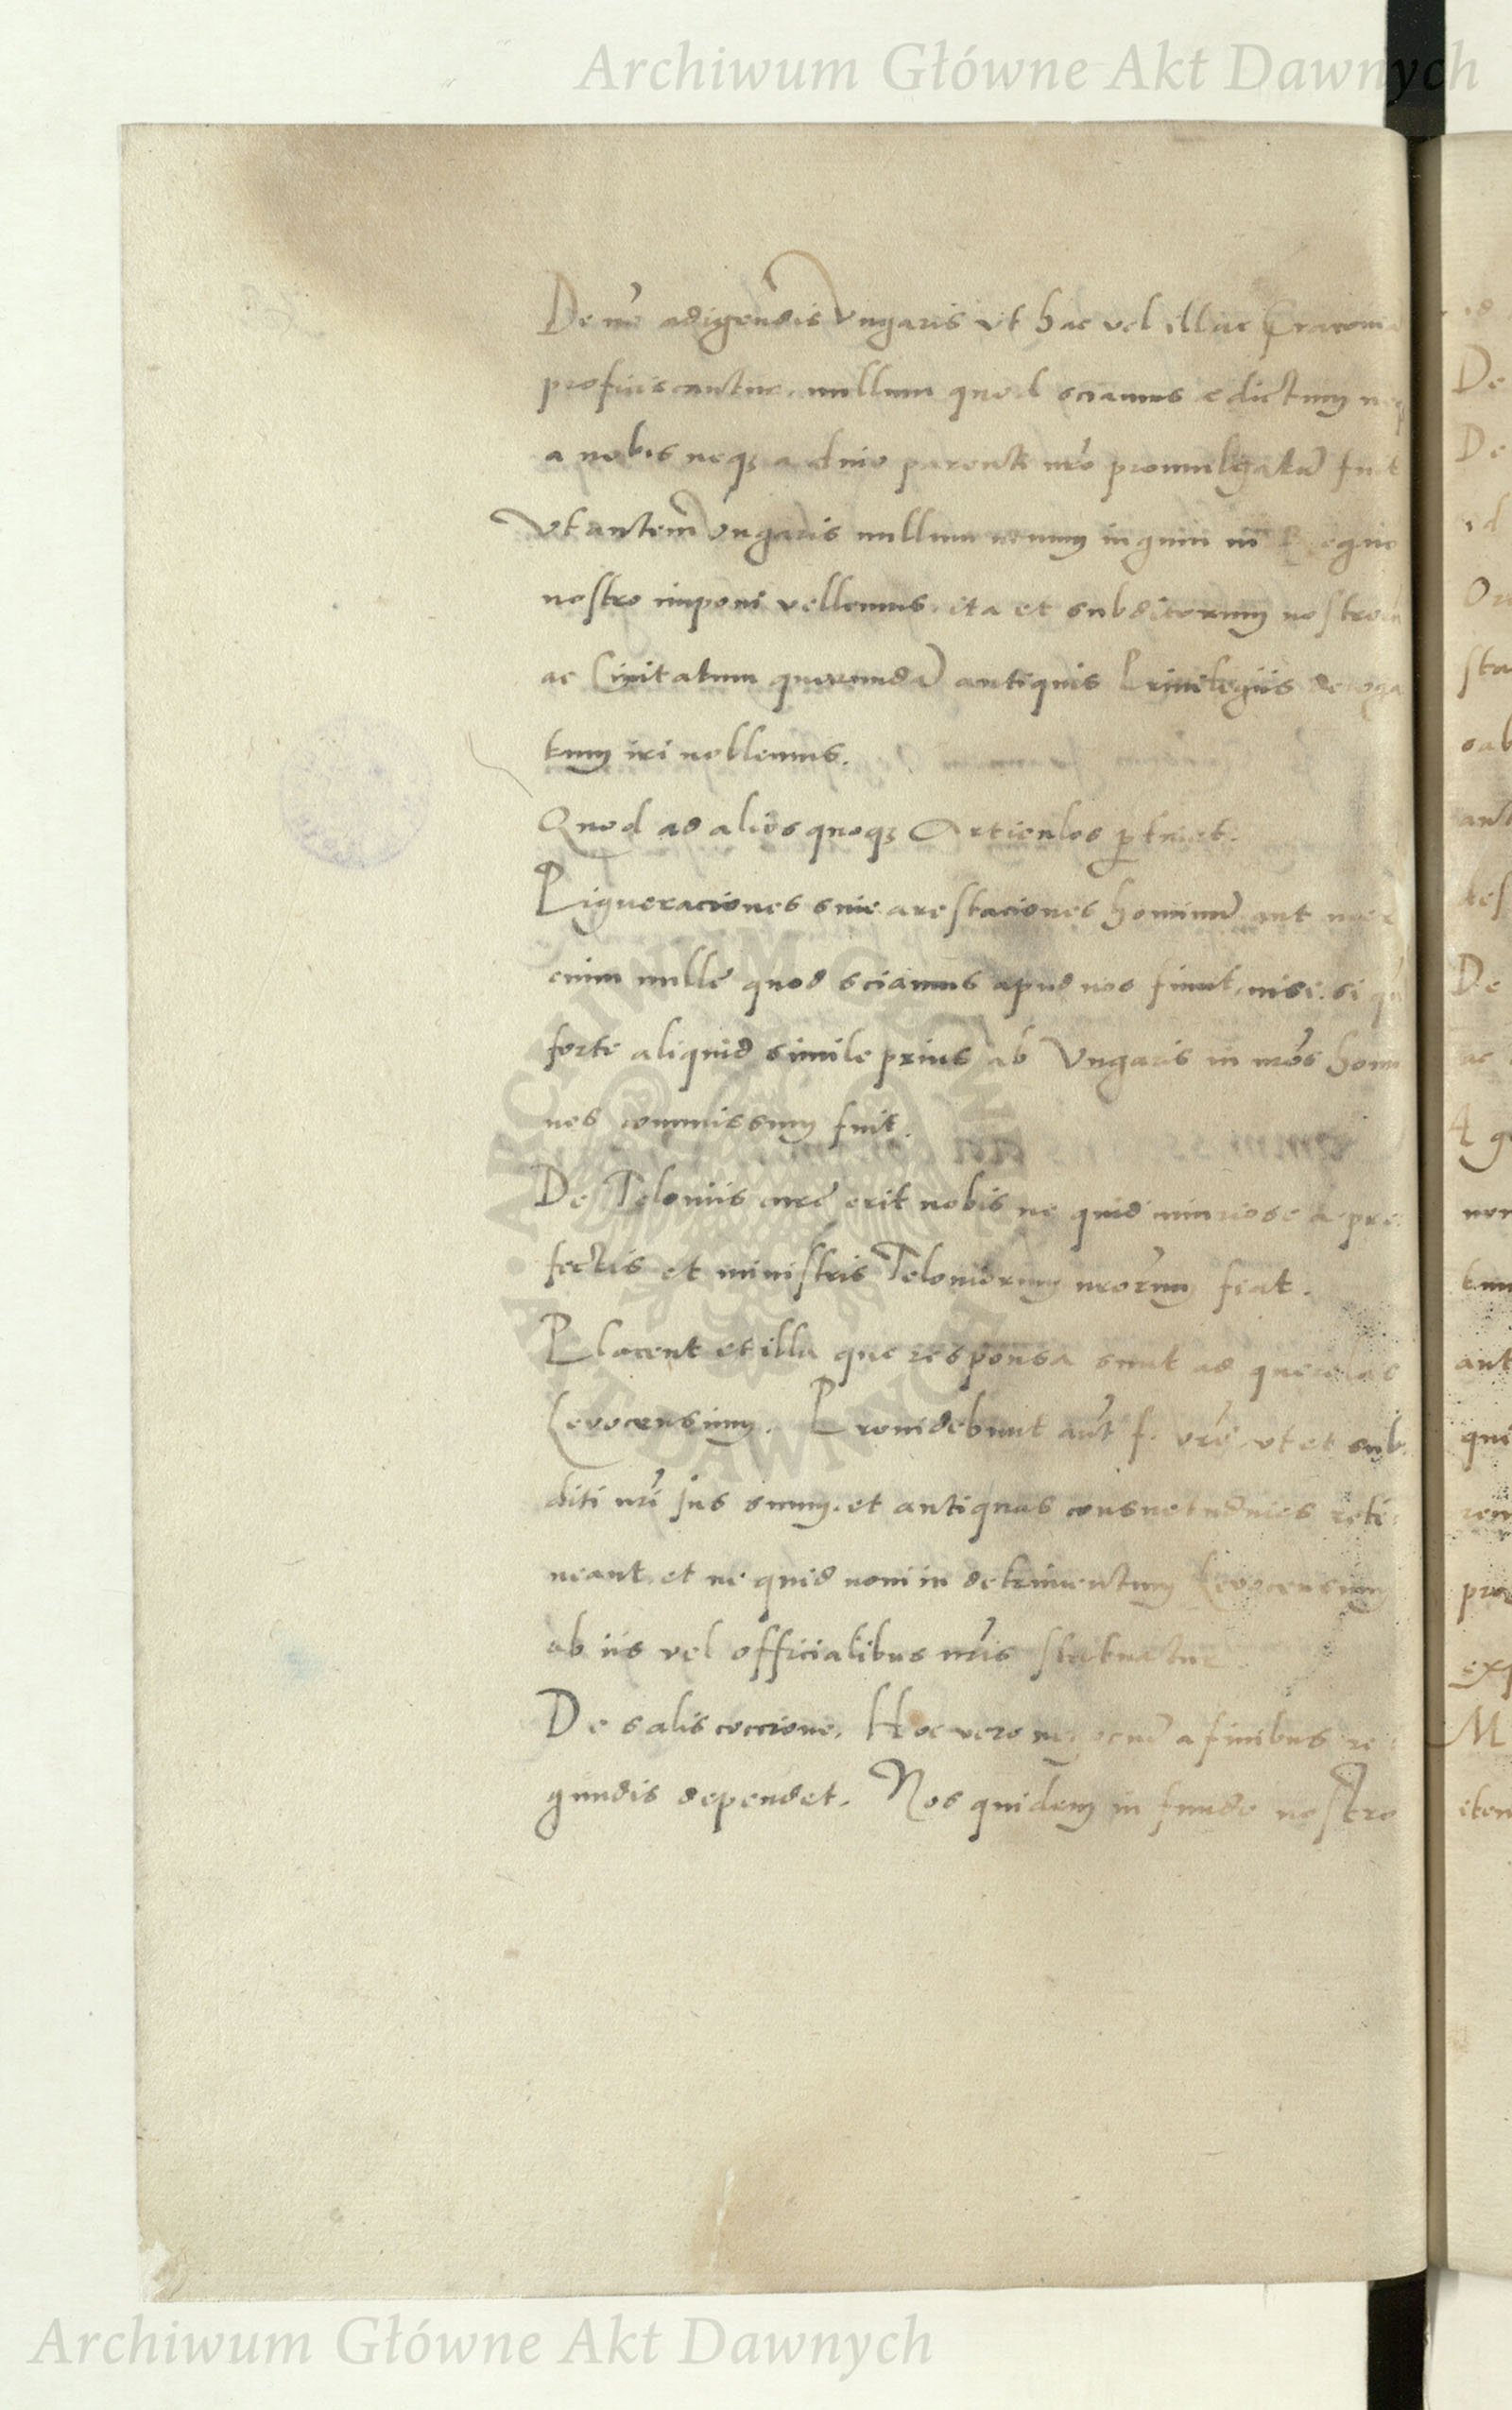 Archiwum Główne Akt Dawnych
De nō adigendis Vngaris vt hac vel illac Cracouia
proficiscantur, nullum quod sciamus edictum neq
a nobis neqȝ a dnio parente nr̄o promulgatū fuit
Vt autem Vngaris nullum nouum in quin in Regno
nostro imponi vellemus, ita et subditorum nostrorū
ac Ciuitatum quorundā antiquis Priuilegiis deroga
tum iri nollemus.
Quod ad alios quoqȝ Articulos ꝑtinet.
Pigneraciones siue arestaciones hominū aut
enim nulle quod sciamus apud nos fiunt, nisi, si
forte aliquid simile prius ab Vngaris in nr̄os homi
nes commissum fuit.
De Teloniis cure erit nobis ne quid iniuriose a pre
fectis et ministris Teloniorum nr̄orum fiat.
Placent et illa que responsa sunt ad querelas
Levocensium. Prouidebunt aūt f. vr̄e vt et sub
diti nr̄i jus suum, et antiquas consuetudines reti
neant, et ne quid noui in detrimentum Levocensium
ab iis vel officialibus nr̄is statuatur
De salis coccione. Hoc vero negociū a finibus re
gundis dependet. Nos quidem in fundo nostro
Archiwum Główne Akt Dawnych